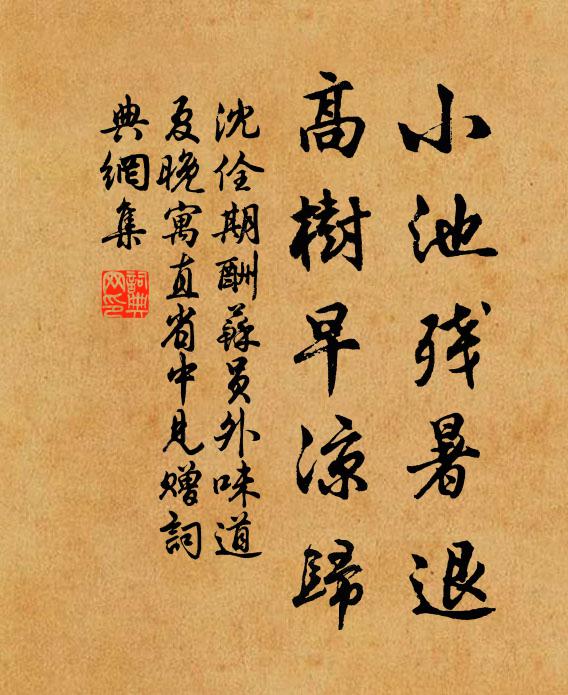 小池残暑退
高樹早涼歸
沈佺期酬蘇员外味道
夏晚寓直省中見贈詞
典網集
詞典
网印